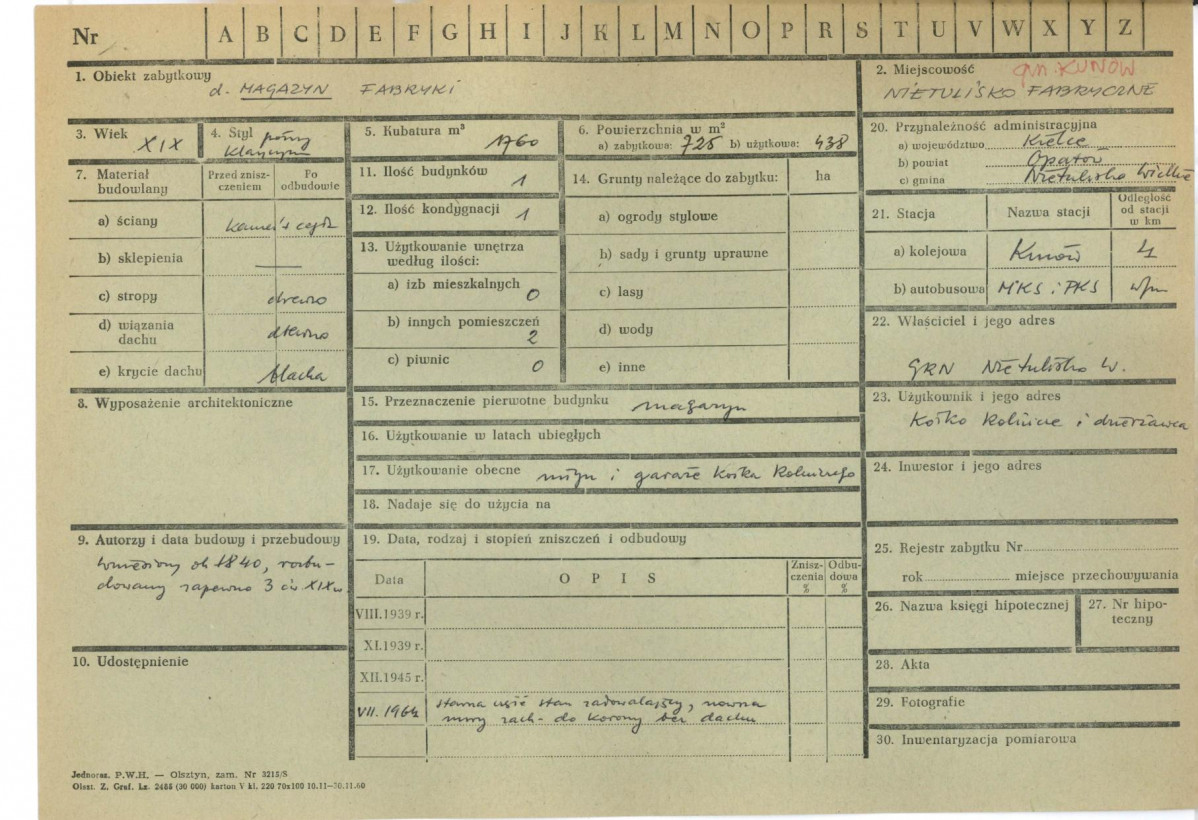 Nr A B C D E F G H I J K L M N O P R S T U V W X Y Z
1. Obiekt zabytkowy
d. MAGAZYN FABRYKI
2. Miejscowość gm. KUNÓW
NIETULISKO FABRYCZNE
3. Wiek XIX
4. Styl późny
klasycyzm
5. Kubatura m³ 1760
6. Powierzchnia w m²
a) zabytkowa: 725 b) użytkowa: 438
7. Materiał
budowlany
Przed znisz-
czeniem
Po
odbudowie
a) ściany kamień i cegła
b) sklepienia —
c) stropy drewno
d) wiązania
dachu drewno
e) krycie dachu blacha
8. Wyposażenie architektoniczne
9. Autorzy i data budowy i przebudowy
wzniesiony ok 1840, rozbu-
dowany zapewne 3 ćw. XIX w
10. Udostępnienie
11. Ilość budynków 1
12. Ilość kondygnacji 1
13. Użytkowanie wnętrza
według ilości:
a) izb mieszkalnych 0
b) innych pomieszczeń
2
c) piwnic 0
14. Grunty należące do zabytku: ha
a) ogrody stylowe
b) sady i grunty uprawne
c) lasy
d) wody
e) inne
15. Przeznaczenie pierwotne budynku magazyn
16. Użytkowanie w latach ubiegłych
17. Użytkowanie obecne młyn i garaże Kółka Rolniczego
18. Nadaje się do użycia na
19. Data, rodzaj i stopień zniszczeń i odbudowy
Data OPIS
Znisz-
czenia
%
Odbu-
dowa
%
VIII.1939 r.
XI.1939 r.
XII.1945 r.
VII. 1964 stara część stan zadowalający, nowsza
mury zach. do korony bez dachu
20. Przynależność administracyjna
a) województwo Kielce
b) powiat Opatów
c) gmina Nietulisko Wielkie
21. Stacja Nazwa stacji
Odległość
od stacji
w km
a) kolejowa Kunów 4
b) autobusowa MKS i PKS w/m
22. Właściciel i jego adres
GRN Nietulisko W.
23. Użytkownik i jego adres
Kółko Rolnicze i dzierżawca
24. Inwestor i jego adres
25. Rejestr zabytku Nr
rok miejsce przechowywania
26. Nazwa księgi hipotecznej
27. Nr hipo-
teczny
28. Akta
29. Fotografie
30. Inwentaryzacja pomiarowa
Jednoraz. P.W.H. — Olsztyn, zam. Nr 3215/S
Olszt. Z. Graf. Lz. 2455 (30 000) karton V kl. 220 70x100 10.11—30.11.60